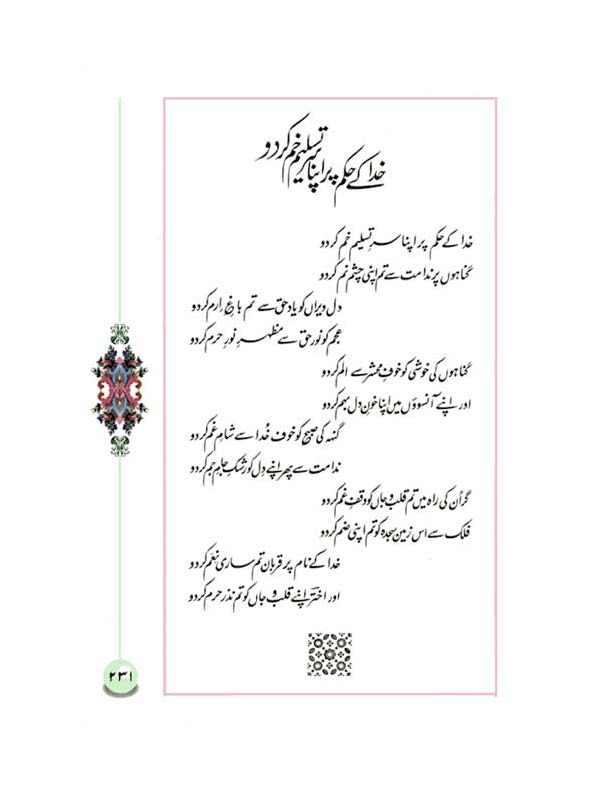 خدا کے حکم پر اپنا سر تسلیم خم کردو
خدا کے حکم پر اپنا سرِ تسلیم خم کردو
گناہوں پر ندامت سے تم اپنی چشم نم کردو
دل ویراں کو یاد حق سے تم باغِ ارم کردو
عجم کو نور حق سے مظہرِ نورِ حرم کردو
گناہوں کی خوشی کو خوفِ محشر سے الم کردو
اور اپنے آنسوؤں میں اپنا خونِ دل بہم کردو
گنہ کی صبح کو خوف خُدا سے شامِ غم کردو
ندامت سے پھر اپنے دِل کو رشکِ جامِ جم کردو
گر اُن کی راہ میں تم قلب و جاں کو وقفِ غم کردو
فلک سے اس زمینِ سجدہ کو تم اپنی ضم کردو
خدا کے نام پر قربان تم ساری نِعَم کردو
اور اخترؔ اپنے قلب و جاں کو تم نذر حرم کردو
۲۳۱